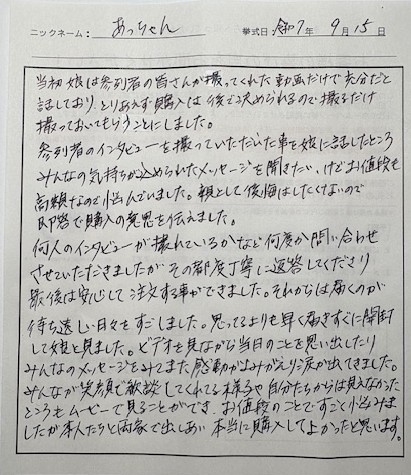 ニックネーム: あっちゃん 挙式日 令和7年 9月15日
当初娘は参列者の皆さんが撮ってくれた動画だけで充分だと
話しており、とりあえず購入は後で決められるので撮るだけ
撮っておいてもらうことにしました。
参列者のインタビューを撮っていただいた事を娘に話したところ
みんなの気持ちが込められたメッセージを聞きたい、けどお値段も
高額なので悩んでいました。親として後悔はしたくないので
即答で購入の意思を伝えました。
何人のインタビューが撮れているかなど何度か問い合わせ
させていただきましたがその都度丁寧に返答してくださり
最後は安心して注文する事ができました。それからは届くのが
待ち遠しい日々をすごしました。思ってるよりも早く届きすぐに開封
して娘と見ました。ビデオを見ながら当日のことを思い出したり
みんなのメッセージをみてまた感動がよみがえり涙が出てきました。
みんなが笑顔で歓談してくれてる様子や自分たちからは見えなかった
ところもムービーで見ることができ、お値段のことですごく悩みま
したが本人たちと両家で出しあい本当に購入してよかったと思います。